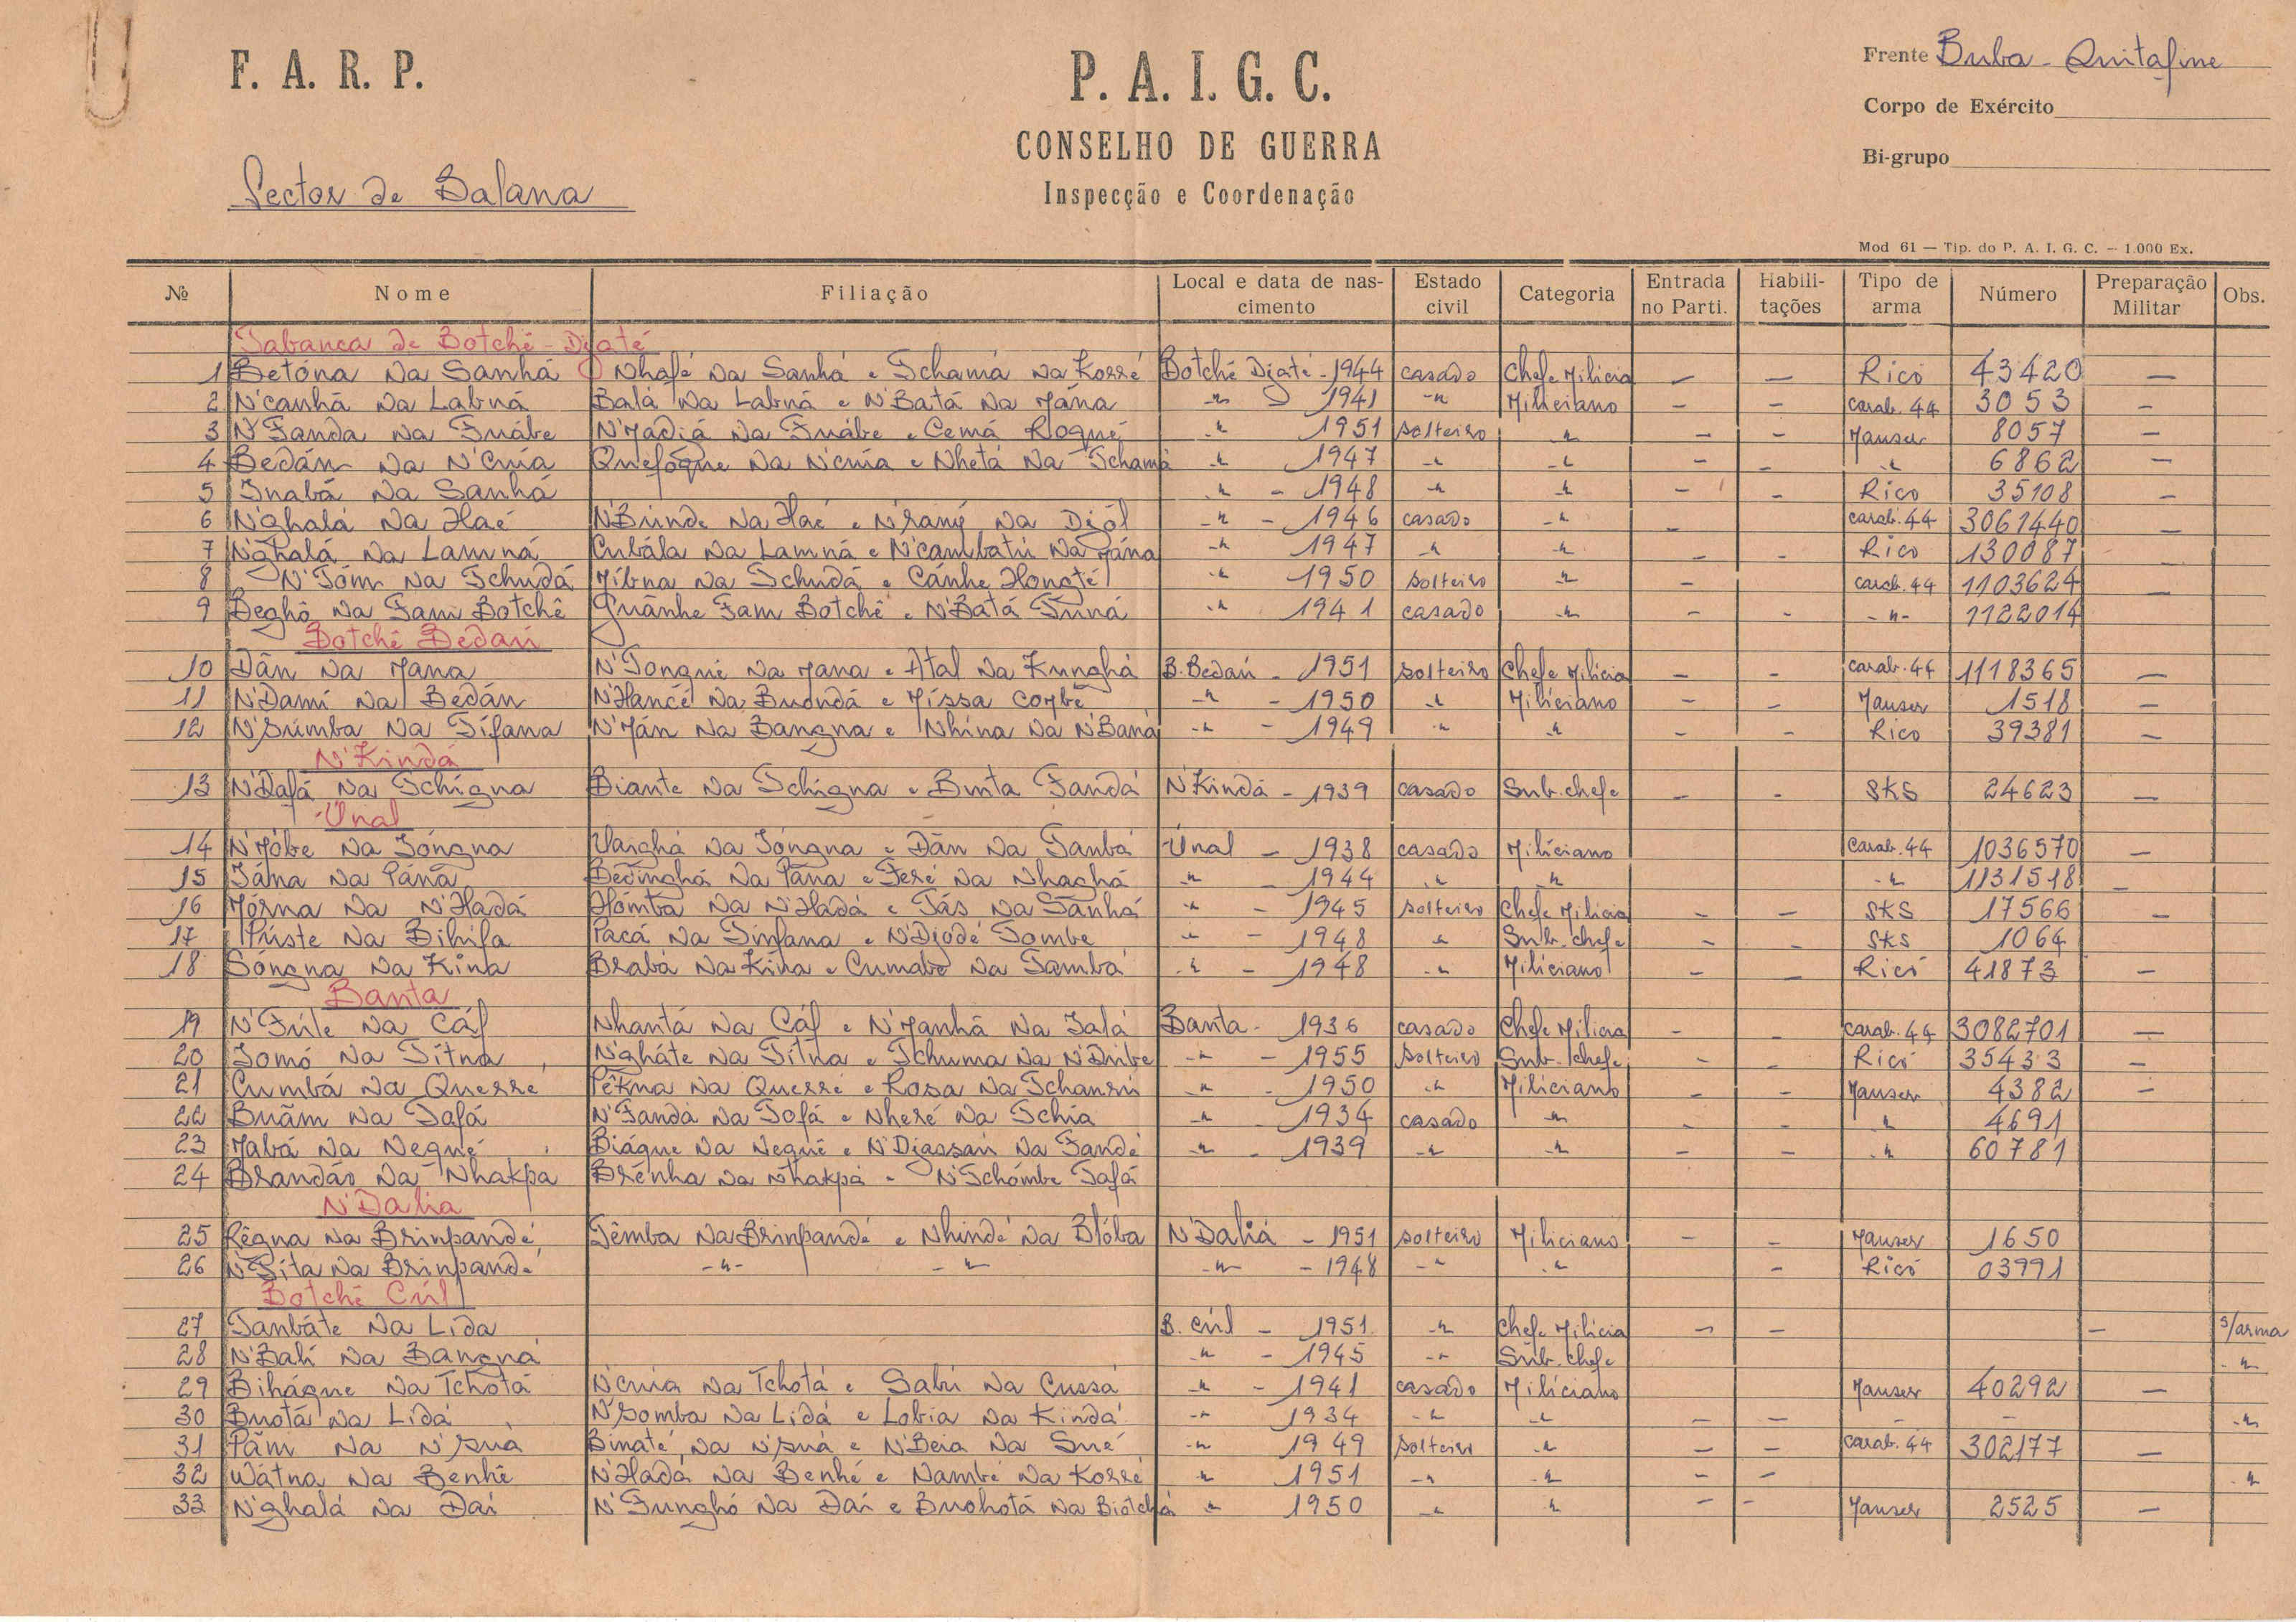 F. A. R. P.
P. A. I. G. C.
CONSELHO DE GUERRA
Inspecção e Coordenação
Frente Buba - Quitafine
Corpo de Exército
Bi-grupo
Sector de Balana
Mod 61 — Tip. do P. A. I. G. C. — 1.000 Ex.
№ Nome Filiação Local e data de nascimento Estado civil Categoria Entrada no Parti. Habilitações Tipo de arma Número Preparação Militar Obs.
Tabanca de Botchê - Djaté
1 Betóna Na Sanhá Nhafé Na Sanhá e Tchamá Na Korré Botchê Djaté - 1944 casado Chefe Milicia — — Rico 43420 —
2 N'canhã Na Labná Balá Na Labná e N'Batá Na Mána -"- 1941 -"- Miliciano — — carab. 44 3053 —
3 N'Fanda Na Fuábe N'Mádjá Na Fuábe e Cemá Rloqué -"- 1951 solteiro -"- — — Mauser 8057 —
4 Bedán Na N'Cuia Quefóque Na N'cuia e Nhetá Na Tchamá -"- 1947 -"- -"- — — -"- 6862 —
5 Inabá Na Sanhá -"- - 1948 -"- -"- — — Rico 35108 —
6 N'ghalá Na Haé N'Bunde Na Haé e N'ramy Na Djól -"- - 1946 casado -"- — carab. 44 3061440 —
7 N'ghalá Na Lamná Cubála Na Lamná e N'cambatú Na Mána -"- 1947 -"- -"- — — Rico 130087 —
8 N'Tóm Na Tchudá Míbna Na Tchudá e Cánhe Hongté -"- 1950 solteiro -"- — carab. 44 1103624 —
9 Beghó Na Fam Botchê Quânhe Fam Botchê e N'Batá Funá -"- 1941 casado -"- — — -"- 1122014
Botchê Bedan
10 Dãn Na Mana N'Tongué Na Mana e Atal Na Kunghá B. Bedan - 1951 solteiro Chefe Milicia — — carab. 44 1118365 —
11 N'Dami Na Bedán N'Hancé Na Buondá e Missa Combé -"- - 1950 -"- Miliciano — — Mauser 1518 —
12 N'Sumba Na Tífana N'Mán Na Bangna e Nhina Na N'Baná -"- - 1949 -"- -"- — — Rico 39381 —
N'Kindá
13 N'Dafá Na Tchigna Biante Na Tchigna e Binta Fandá N'Kindá - 1939 casado Sub-chefe — — SKS 24623 —
Unal
14 N'Móbe Na Tóngna Uanghá Na Tóngna e Dãn Na Tambá Unal - 1938 casado Miliciano Carab. 44 1036570 —
15 Tána Na Pána Bedinghá Na Pána e Feré Na Nhaghá -"- - 1944 -"- -"- -"- 1131518 —
16 Mórna Na N'Hadá Hómba Na N'Hadá e Tás Na Sanhá -"- - 1945 solteiro Chefe Milicia — — SKS 17566 —
17 Púste Na Bihifa Pacá Na Tinfana e N'Djodé Tombe -"- - 1948 -"- Sub-chefe — — SKS 1064
18 Sóngna Na Kina Brabá Na Kina e Cumabe Na Tambá -"- - 1948 -"- Miliciano — — Rico 41873 —
Banta
19 N'Fule Na Cáf Nhantá Na Cáf e N'Manhã Na Talá Banta - 1936 casado Chefe Milicia — — carab. 44 3082701 —
20 Tomó Na Títna N'gháte Na Títna e Tchuma Na N'Dribe -"- - 1955 solteiro Sub-chefe — — Rico 35433 —
21 Cumbá Na Querre Pêkna Na Querré e Rosa Na Tchansú -"- - 1950 -"- Miliciano — — Mauser 4382 —
22 Buãm Na Tafá N'Fanda Na Tofá e Nheré Na Tchia -"- - 1934 casado -"- — — -"- 4691
23 Mabá Na Nequé Biágue Na Nequé e N'Djassan Na Fandé -"- - 1939 -"- -"- — — -"- 60781
24 Brandão Na Nhakpa Brénha Na Nhakpá - N'Tchómbe Tafá
N'Dalia
25 Rêgna Na Brinpandé Têmba Na Brinpandé e Nhindé Na Blóba N'Daliá - 1951 solteiro Miliciano — — Mauser 1650
26 N'Sita Na Brinpandé -"- -"- -"- - 1948 -"- -"- — Rico 03991
Botchê Cul
27 Tanbáte Na Lida B. Cul - 1951 -"- Chefe Milicia — — — s/arma
28 N'Bali Na Bangná -"- - 1945 -"- Sub-chefe -"-
29 Bihágue Na Tchotá N'cuia Na Tchotá e Sabú Na Cussá -"- - 1941 casado Miliciano Mauser 40292 —
30 Buotá Na Lidá N'Somba Na Lidá e Lobia Na Kindá -"- 1934 -"- -"- — — - - -"-
31 Pãm Na N'suá Binaté Na N'suá e N'Beia Na Sué -"- 1949 solteiro -"- — — carab. 44 302177 —
32 Watna Na Benhê N'Hadá Na Benhé e Nambé Na Korré -"- 1951 -"- -"- — — -"-
33 N'ghalá Na Dai N'Funghó Na Dai e Buohotá Na Biotchá -"- 1950 -"- -"- — — Mauser 2525 —